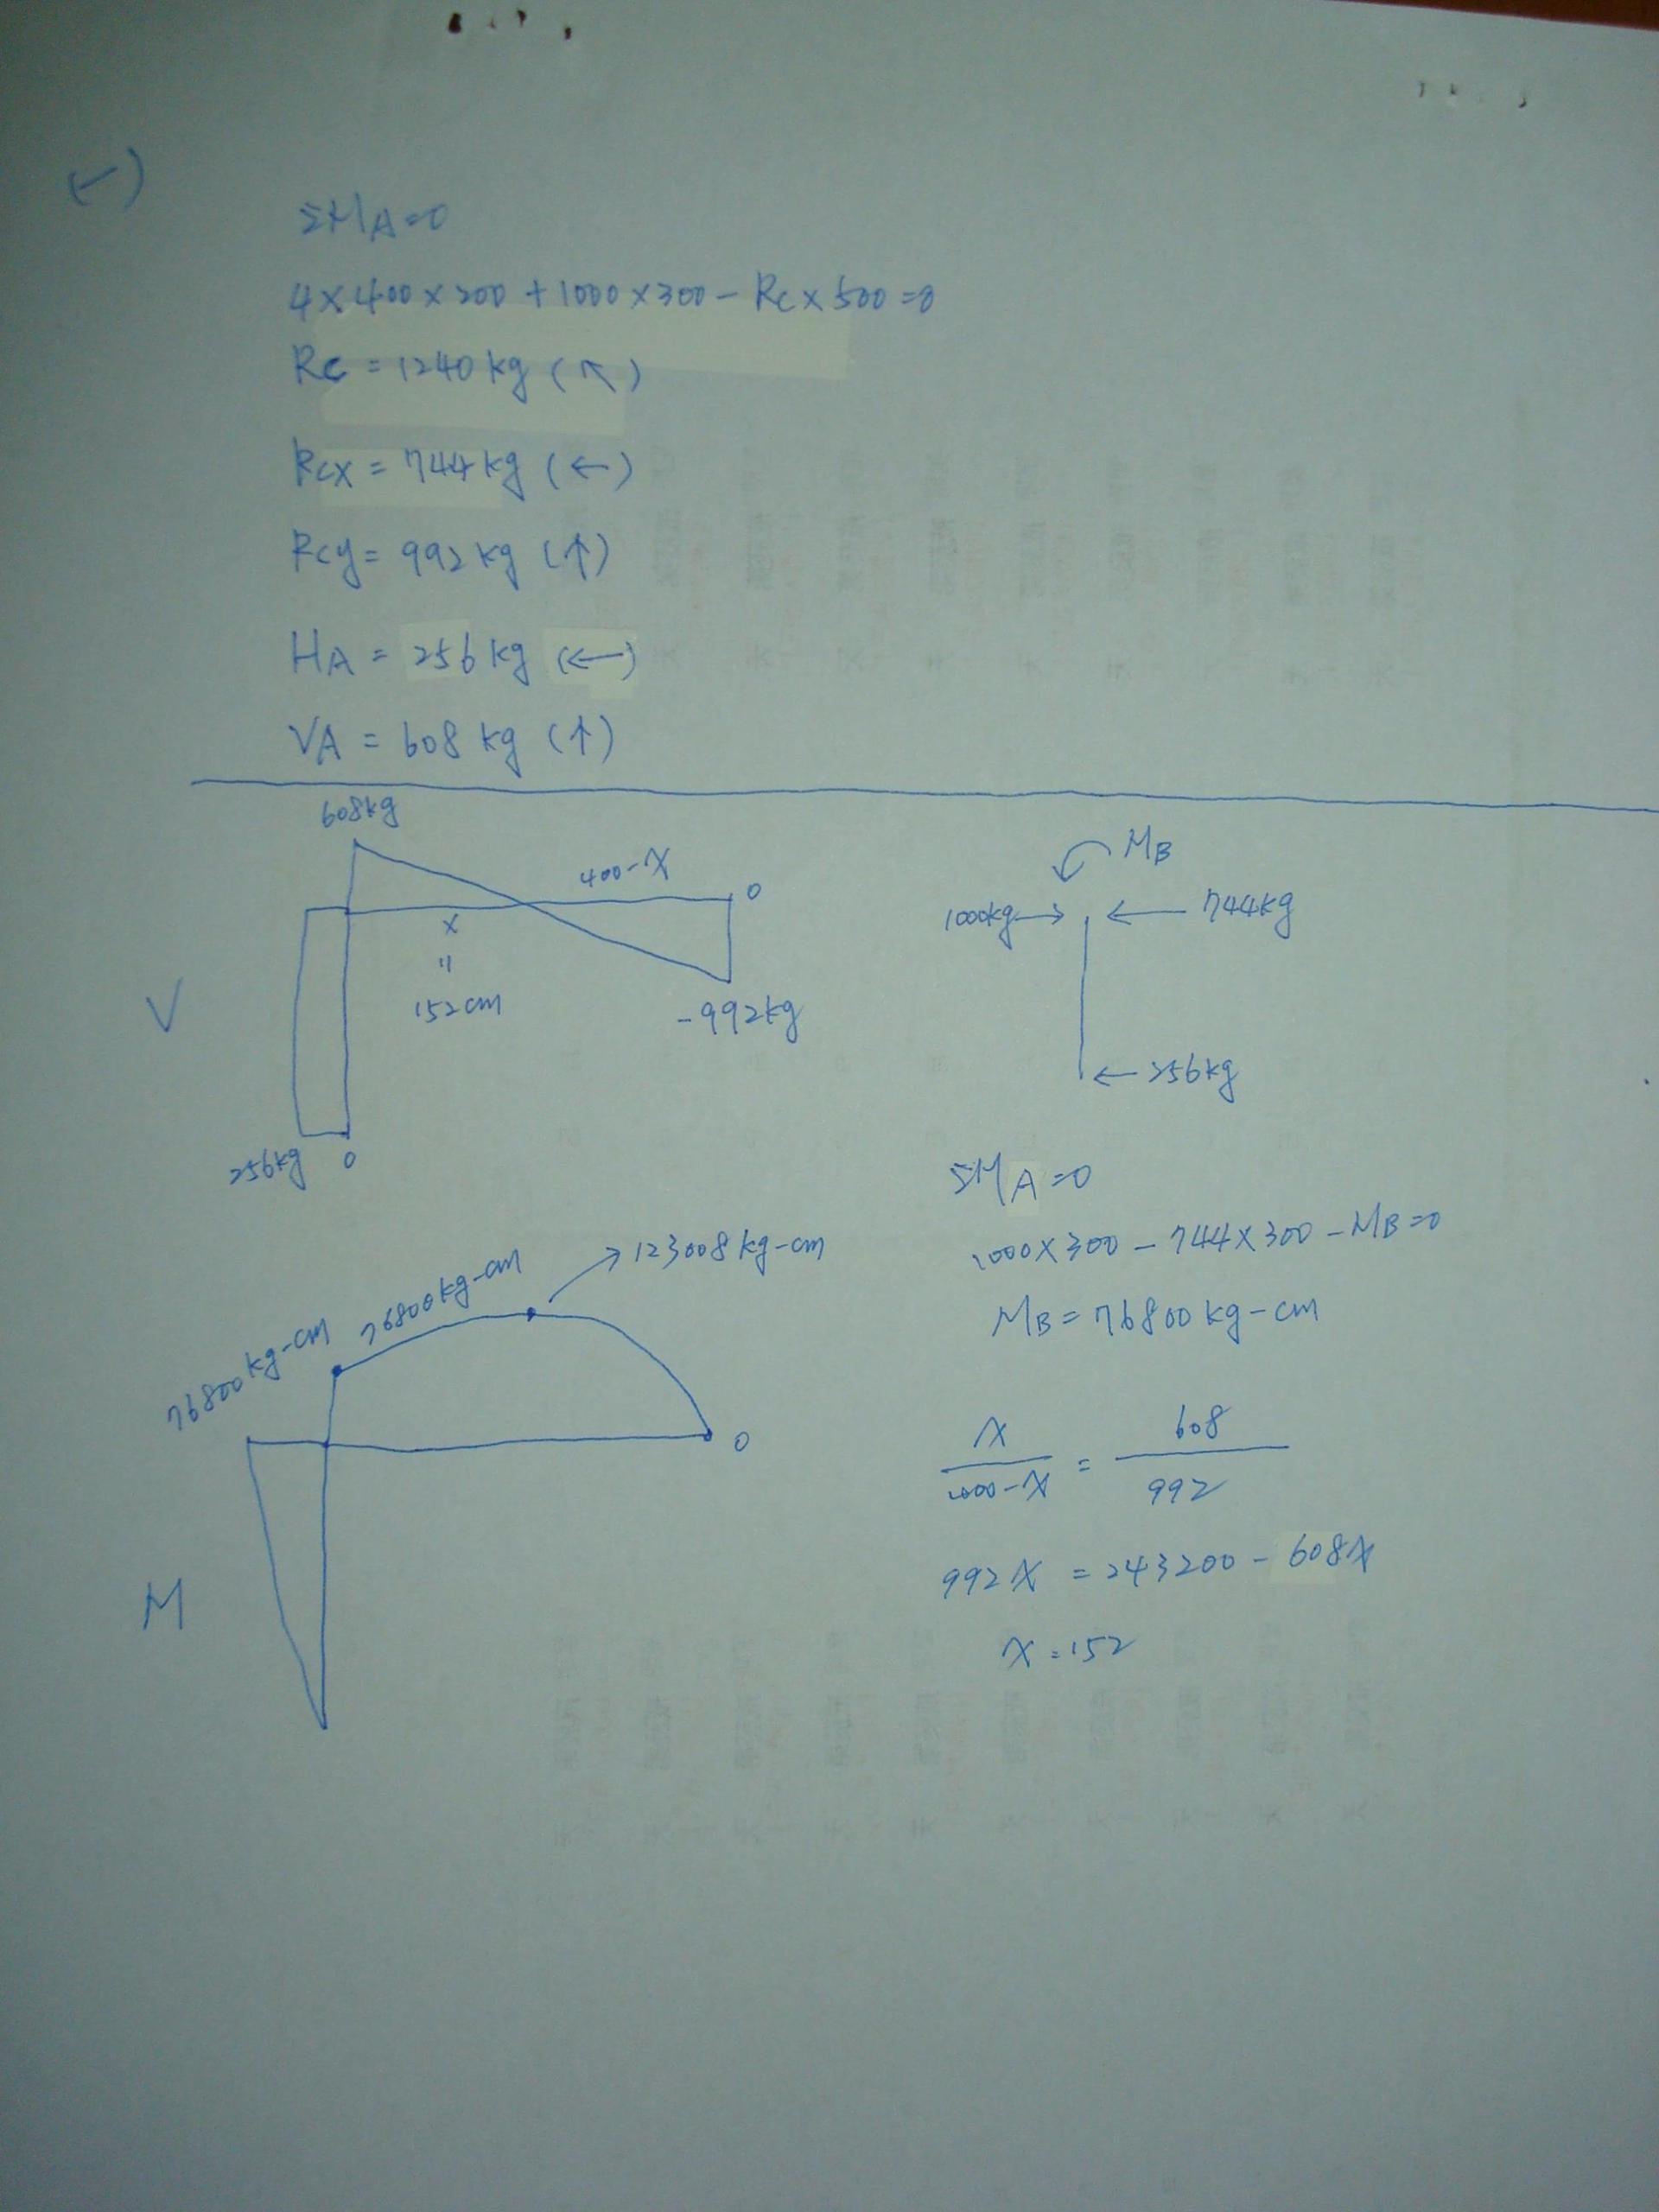 (一)
ΣMA=0
4×400×200+1000×300-Rc×500=0
Rc=1240kg(↖)
Rcx=744kg(←)
Rcy=992kg(↑)
HA=256kg(←)
VA=608kg(↑)
608kg
400-X
0
X
"
152cm
-992kg
V
256kg
0
MB
1000kg→
←744kg
←256kg
ΣMA=0
1000×300-744×300-MB=0
MB=76800kg-cm
76800kg-cm
76800kg-cm
→123008kg-cm
0
M
X
608
=
992
992X=243200-608X
X=152